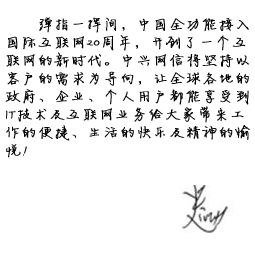 弹指一挥间，中国全功能接入
国际互联网20周年，开创了一个互
联网的新时代。中兴网信得坚持以
客户的需求为导向，让全球各地的
政府、企业、个人用户都能享受到
IT技术及互联网业务给大家带来工
作的便捷、生活的快乐及精神的愉
悦！